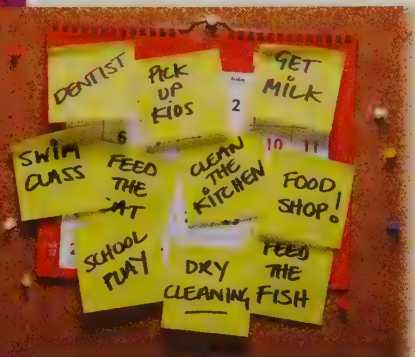 DENTIST
PICK
UP
KIDS
GET
MILK
2
6
10 11
SWIM
CLASS
FEED
THE
CLEAN
THE
KITCHEN
FOOD
SHOP!
SCHOOL
PLAY
DRY
CLEANING
FEED
THE
FISH